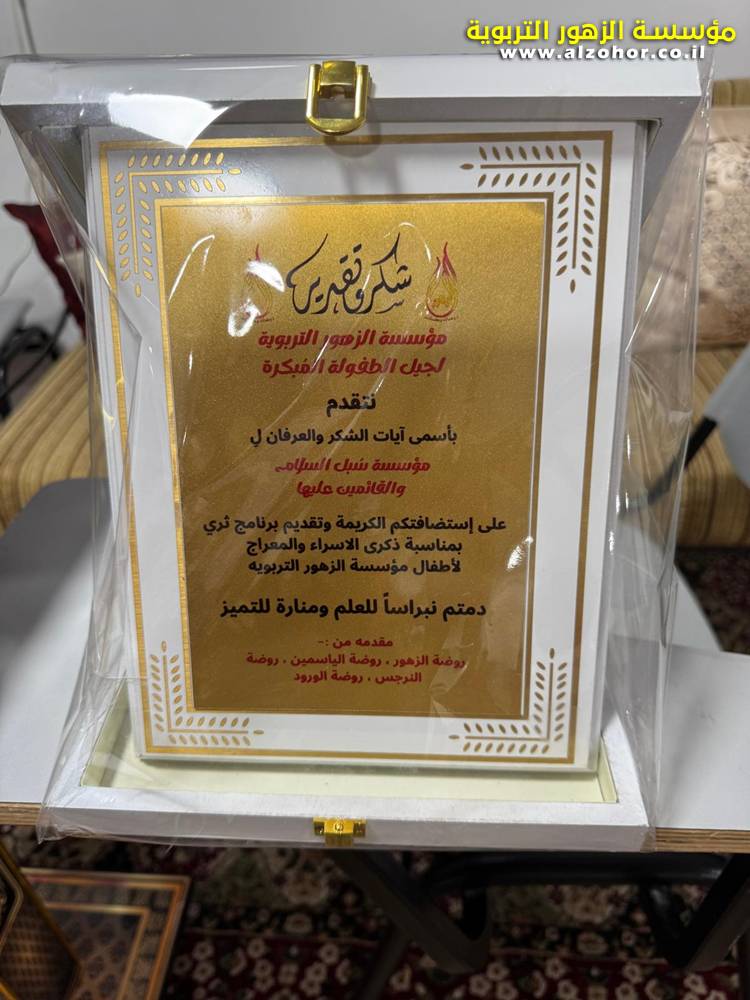 مؤسسة الزهور التربوية
www.alzohor.co.il
شكر وتقدير
مؤسسة الزهور التربوية
لجيل الطفولة المبكرة
نتقدم
بأسمى آيات الشكر والعرفان لِ
مؤسسة سُبل السلام
والقائمين عليها
على إستضافتكم الكريمة وتقديم برنامج ثري
بمناسبة ذكرى الاسراء والمعراج
لأطفال مؤسسة الزهور التربويه
دمتم نبراساً للعلم ومنارة للتميز
مقدمه من :-
روضة الزهور ، روضة الياسمين ، روضة
النرجس ، روضة الورود